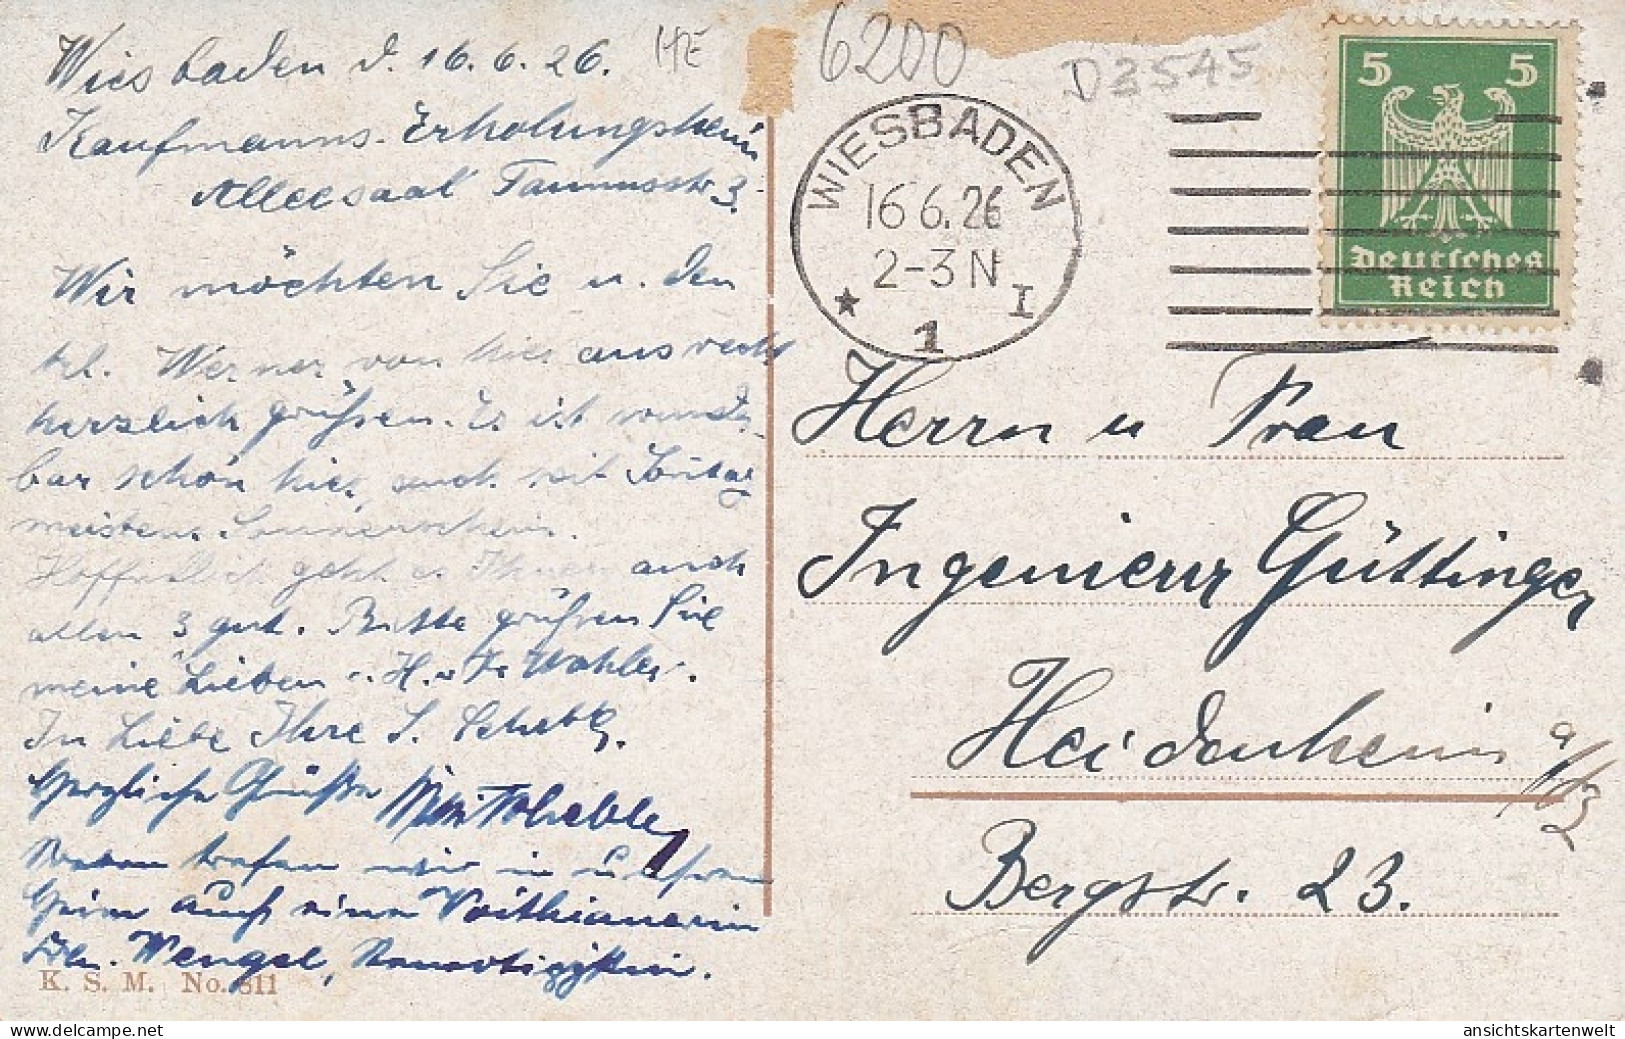 Wiesbaden d. 16.6.26.
Kaufmanns-Erholungsheim
Alleesaal Taunusstr. 3.
Wir möchten Sie u. den
kl. Werner von hier aus recht
herzlich grüßen. Es ist wunder-
bar schön hier, auch seit Sonntag
meistens Sonnenschein.
Hoffentlich geht es Ihnen auch
allen 3 gut. Bitte grüßen Sie
meine Lieben u. H. u. Fr. Wahler.
In Liebe Ihre S.
Herzliche Grüße
trafen wir in unserem
Heim auch eine Voithianerin
Frln. Wengel,
K. S. M. No. 811
HE
6200
D3545
WIESBADEN
16 6. 26
2-3 N
★ 1 I
5 5
Deutsches
Reich
Herrn u Frau
Ingenieur Güttinger
Heidenheim a/Brz
Bergstr. 23.
ansichtskartenwelt